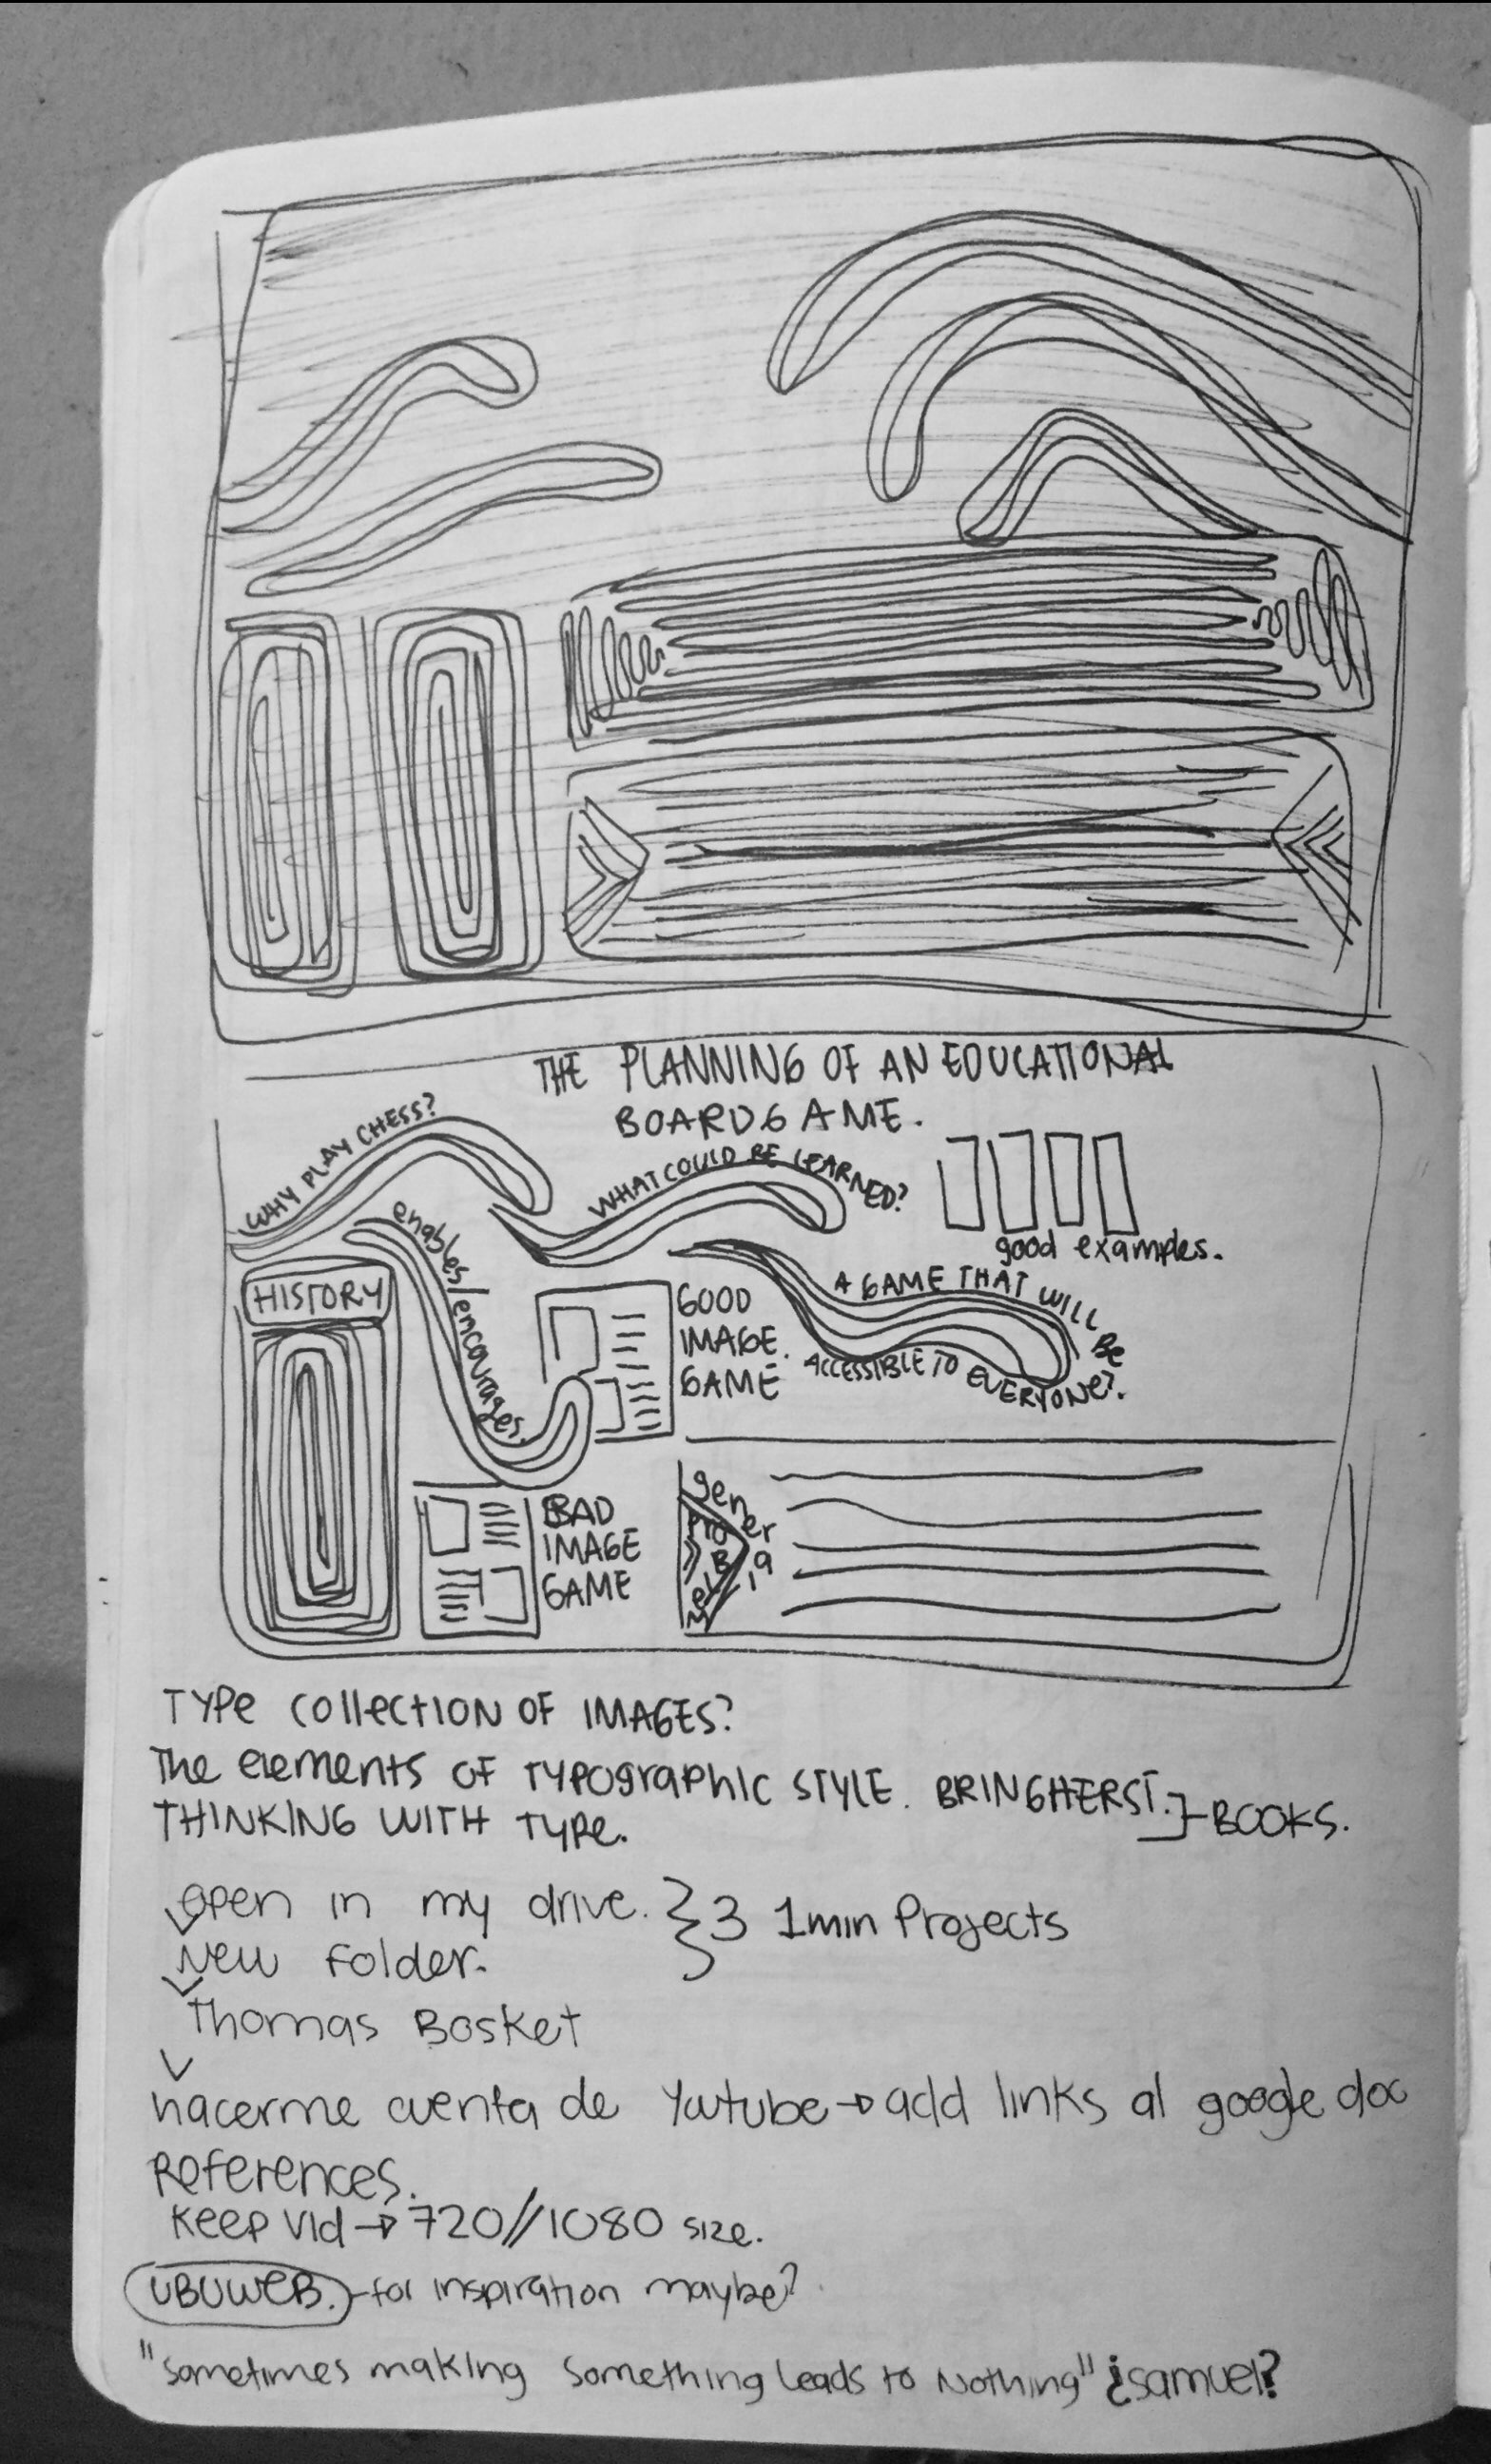 THE PLANNING OF AN EDUCATIONAL
BOARDGAME.
WHY PLAY CHESS?
WHAT COULD BE LEARNED?
good examples.
enables/encourages.
HISTORY
GOOD
IMAGE.
GAME
A GAME THAT WILL BE
ACCESSIBLE TO EVERYONE?.
BAD
IMAGE
GAME
general
TYPE COllECTION OF IMAGES?
The elements OF TYPOgraphic STYLE. BRINGHERST.
THINKING WITH TYPE.
BOOKS.
open in my drive.
New Folder.
3 1min Projects
Thomas Bosket
hacerme cuenta de Yutube → add links al google doc
References.
Keep Vid → 720//1080 size.
UBUWEB. for inspiration maybe?
"Sometimes making something leads to Nothing" ¿samuel?